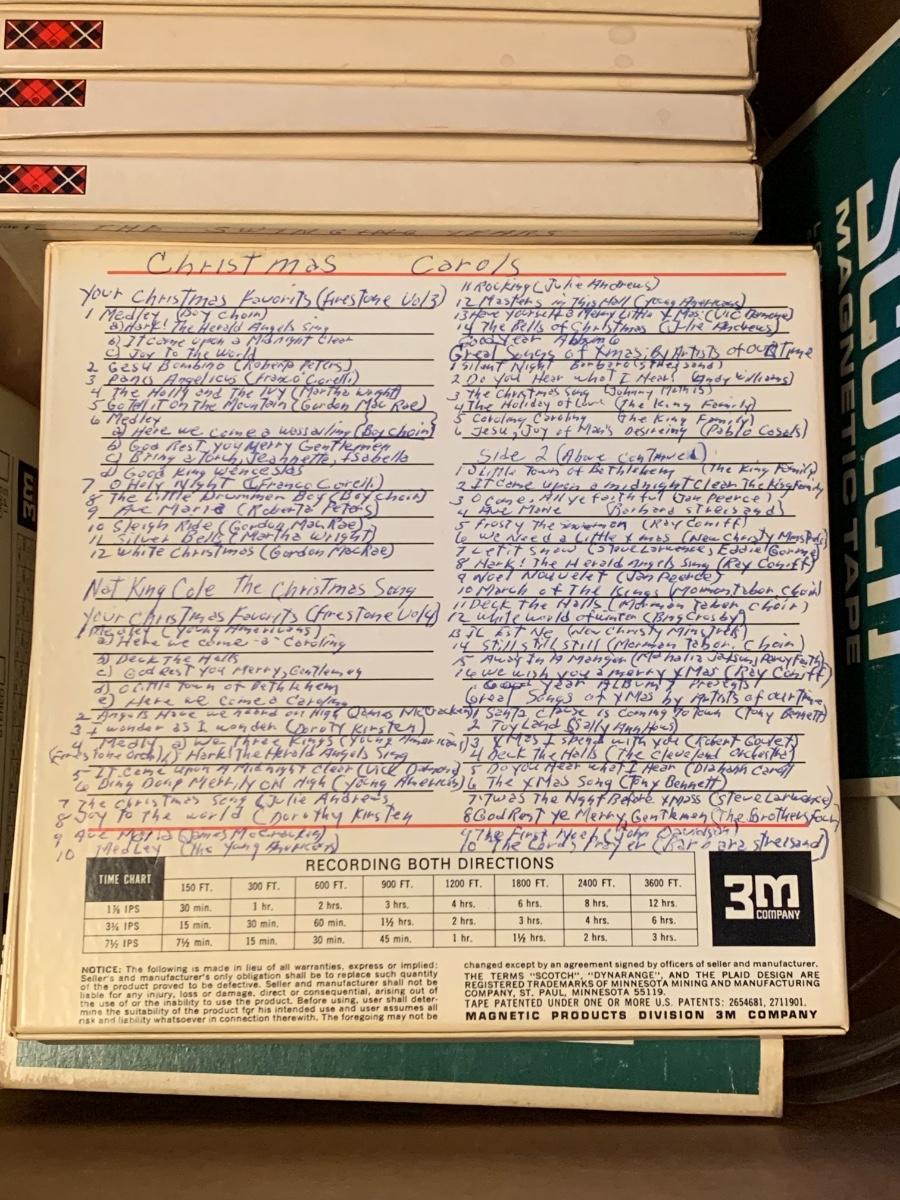 THE SWINGING YEARS
Christmas Carols
Your Christmas Favorits (Firestone Vol 3)
1 Medley (Boy Choir)
a) Hark! The Herald Angels Sing
b) It Came upon a Midnight Clear
c) Joy To the World
2 Gesu Bambino (Roberta Peters)
3 Panis Angelicus (Franco Corelli)
4 The Holly and The Ivy (Martha Wright)
5 Go Tell it On the Mountain (Gordon Mac Rae)
6 Medley
a) Here we come a wassailing (Boy Choir)
b) God Rest you Merry Gentlemen
c) Bring a Torch, Jeannette, Isabella
d) Good King Wenceslas
7 O Holy Night (Franco Corelli)
8 The Little Drummer Boy (Boy Choir)
9 Ave Maria (Roberta Peters)
10 Sleigh Ride (Gordon MacRae)
11 Silver Bells (Martha Wright)
12 White Christmas (Gordon MacRae)
Nat King Cole The Christmas Song
Your Christmas Favorits (Firestone Vol 4)
1 Medley (Young Americans)
a) Here we come-a-Caroling
b) Deck The Halls
c) God Rest You Merry, Gentlemen
d) O Little Town of Bethlehem
e) Here we come a Caroling
2 Angels Have we heard on High (James McCracken)
3 I wonder as I wonder (Doroty Kirsten)
4 Medly a) We Three Kings (Young American)
(Firestone Orch) Hark! The Herald Angels Sing
5 It Came Upon A Midnight Clear (Vic Damone)
6 Ding Dong Merrily ON High (Young American)
7 The Christmas Song (Julie Andrews
8 Joy to the world (Dorothy Kirsten
9 Ave Maria (James McCracken)
10 Medley (The Young Americans)
11 Rocking (Julie Andrews)
12 Masters in This Hall (Young Americans)
13 Have yourself a Merry Little X Mas (Vic Damone)
14 The Bells of Christmas (Julie Andrews)
Good Year Album 6
Great Songs of Xmas, By Artists of our Time
1 Silent Night Barbara Streisand)
2 Do You Hear what I Hear (Andy Williams)
3 The Christmas Song Johnny Mathis)
4 The Holiday of Love (The King Family)
5 Caroling Caroling (The King Family)
6 Jesu, Joy of Man's Desireing (Pablo Casals)
Side 2 (Above continued)
1 O Little Town of Bethlehem (The King Family)
2 It Came upon a midnight Clear The King Family
3 O Come, All ye faithful (Jan Peerce)
4 Ave Marie (Barbard Streisand)
5 Frosty the (Ray Coniff)
6 We Need a Little X mas (New Christy Minstrels)
7 Let it Snow (Steve Lawrence, Eddie Gorme)
8 Hark! The Herald Angels Sing (Ray Coniff)
9 Noel Nouvelet (Jan Peerce)
10 March of The Kings (Mormon Tabor. Choir)
11 Deck The Halls (Mormon Taber, Choir)
12 White world of winter (Bing Crosby)
13 IL Est Ne (New Christy Minstrels)
14 Still Still Still (Mormon Tabor. Choir)
15 Away In A Manger (Mahalia Jackson, Percy Faith)
16 we wish you a merry X Mas (Ray Coniff)
Good Year ALBUM 7 Presents
Great Songs of XMas by Artists of our Time
1 Santa Clause is Coming to Town (Tony Bennett)
2 Toyland (Sally Ann Howes)
3 X Mas I spend with you (Robert Goulet)
4 Deck The Halls (The Cleveland Orchestra)
5 Do you Hear what I Hear (Diahann Carroll
6 The XMas Song (Tony Bennett)
7 Twas The Night Before XMass (Steve Larwence)
8 God Rest ye Merry Gentlemen (The Brothers Four)
9 The First Noel (John Davidson)
10 The Lords Prayer (Barbara Streisand)
RECORDING BOTH DIRECTIONS
TIME CHART 150 FT. 300 FT. 600 FT. 900 FT. 1200 FT. 1800 FT. 2400 FT. 3600 FT.
1⅞ IPS 30 min. 1 hr. 2 hrs. 3 hrs. 4 hrs. 6 hrs. 8 hrs. 12 hrs.
3¾ IPS 15 min. 30 min. 60 min. 1½ hrs. 2 hrs. 3 hrs. 4 hrs. 6 hrs.
7½ IPS 7½ min. 15 min. 30 min. 45 min. 1 hr. 1½ hrs. 2 hrs. 3 hrs.
3M
COMPANY
NOTICE: The following is made in lieu of all warranties, express or implied:
Seller's and manufacturer's only obligation shall be to replace such quantity
of the product proved to be defective. Seller and manufacturer shall not be
liable for any injury, loss or damage, direct or consequential, arising out of
the use of or the inability to use the product. Before using, user shall deter-
mine the suitability of the product for his intended use and user assumes all
risk and liability whatsoever in connection therewith. The foregoing may not be
changed except by an agreement signed by officers of seller and manufacturer.
THE TERMS "SCOTCH", "DYNARANGE", AND THE PLAID DESIGN ARE
REGISTERED TRADEMARKS OF MINNESOTA MINING AND MANUFACTURING
COMPANY, ST. PAUL, MINNESOTA 55119.
TAPE PATENTED UNDER ONE OR MORE U.S. PATENTS: 2654681, 2711901.
MAGNETIC PRODUCTS DIVISION 3M COMPANY
SCOTCH
MAGNETIC TAPE
3M